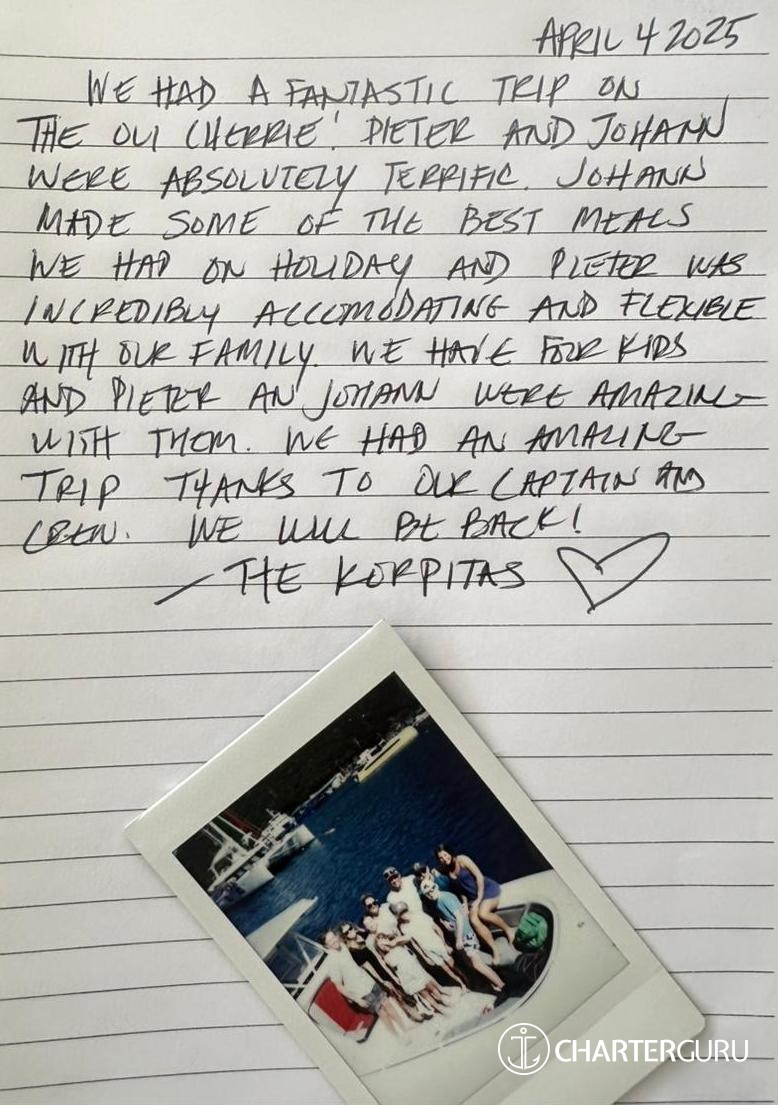 APRIL 4 2025
WE HAD A FANTASTIC TRIP ON
THE OUI CHERRIE! PIETER AND JOHANN
WERE ABSOLUTELY TERRIFIC. JOHANN
MADE SOME OF THE BEST MEALS
WE HAD ON HOLIDAY AND PIETER WAS
INCREDIBLY ACCOMODATING AND FLEXIBLE
WITH OUR FAMILY. WE HAVE FOUR KIDS
AND PIETER AN JOHANN WERE AMAZING
WITH THEM. WE HAD AN AMAZING
TRIP THANKS TO OUR CAPTAIN AND
CREW. WE WILL BE BACK!
— THE KORPITAS
CHARTERGURU